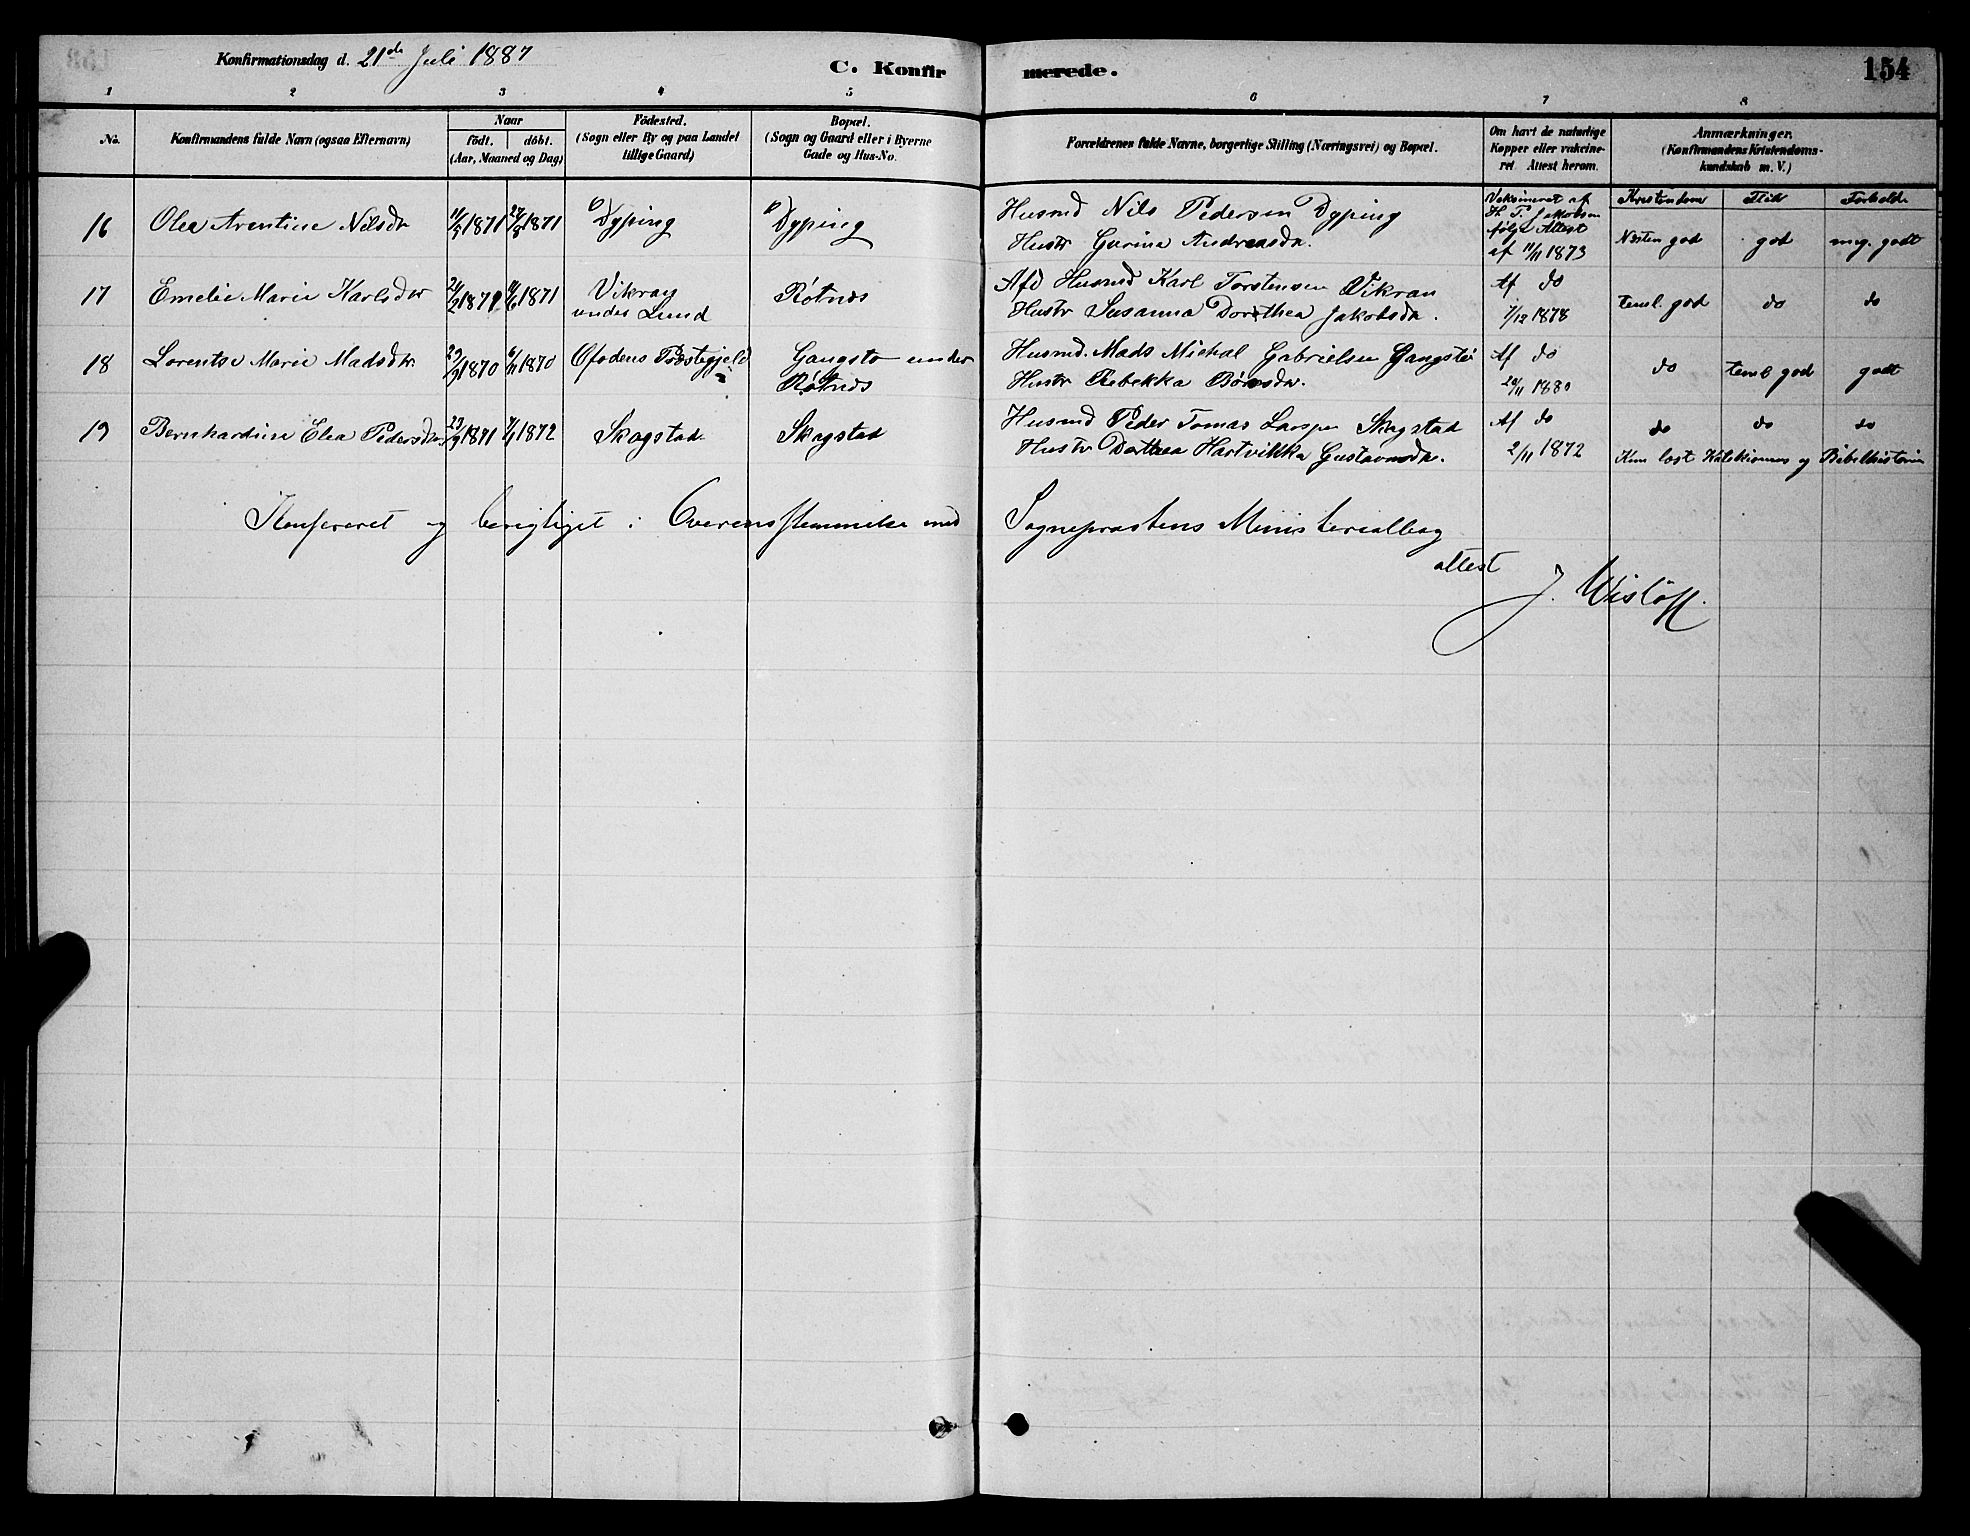 Konfirmationsdag d. 21de Juli 1887
C. Konfir merede. 154
1 2 3 4 5 6 7 8
No.
Konfirmandens fulde Navn (ogsaa Efternavn)
Naar
födt. döbt.
(Aar, Maaned og Dag)
Födested.
(Sogn eller By og paa Landet
tillige Gaard)
Bopæl.
(Sogn og Gaard eller i Byerne
Gade og Hus-No.
Forældrenes fulde Navne, borgerlige Stilling (Næringsvei) og Bopæl.
Om havt de naturlige
Kopper eller vakcine-
ret. Attest herom.
Anmærkninger.
(Konfirmandens Kristendoms-
kundskab m. V.)
Kristendom Flid Forholde
16 Olea Arentine Nilsdr 11/5 1871 27/8 1871 Dyping Dyping
Husmd Nils Pedersen Dyping
Hustr Gurina Andreasdr.
Vaksineret af
H. P. Jakobsen
følge Attest
af 11/11 1873
Næsten god god meg. godt
17 Emelie Marie Karlsdr 1871 1871 Vikran
under Lund
Røtnes
Afd Husmd Karl Torstensen Vikran
Hustr Susanna Dorthea Jakobsdr.
Af do
7/12 1878
teml. god do do
18 Lorentse Marie Madsdr. 29/9 1870 6/11 1870 Ofodens Præstegjeld
Gangstø under
Røtnes
Husmd. Mads Michal Gabrielsen Gangstø
Hustr Rebekka
Af do
20/11 1880
do teml god godt
19 Bernhardine Elea Pedersdr 23/9 1871 7/1 1872 Skogstad Skogstad
Husmd Peder Tomas Skogstad
Hustr Dorthea Hartvikka Gustavsdr.
Af do
2/11 1872
do do do
Kun læst Katekismus og Bibelhistorie
Konfereret og berigtiget i Overensstemmelse med Sognepræstens Ministerialbog
attest
J. Wisløff.